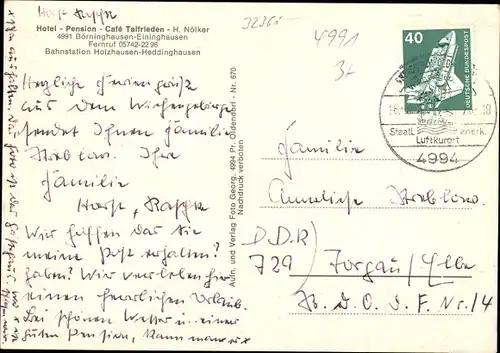 Horst Raschke
Hotel - Pension - Café Talfrieden - H. Nölker
4991 Börninghausen-Eininghausen
Fernruf 05742-2296
Bahnstation Holzhausen-Heddinghausen
Herzliche Feriengrüße
aus dem Wiehengebirge
sendet Ihnen Familie
Strehlow. Ihre
Familie
Horst, Raschke
Wir hoffen das Sie
meine Post erhalten?
haben? Wir verleben hier
einen herrlichen Urlaub.
Bei schönen Wetter u. einer
guten Pension, kann man
Aufn. und Verlag Foto Georg, 4994 Pr. Oldendorf - Nr. 670
Nachdruck verboten
4991
40
DEUTSCHE BUNDESPOST
Staatl. anerk.
Luftkurort
4994
Familie
Anneliese Strehlow
DDR
729
Torgau/Elbe
Str. D. O. d. F. Nr. 14